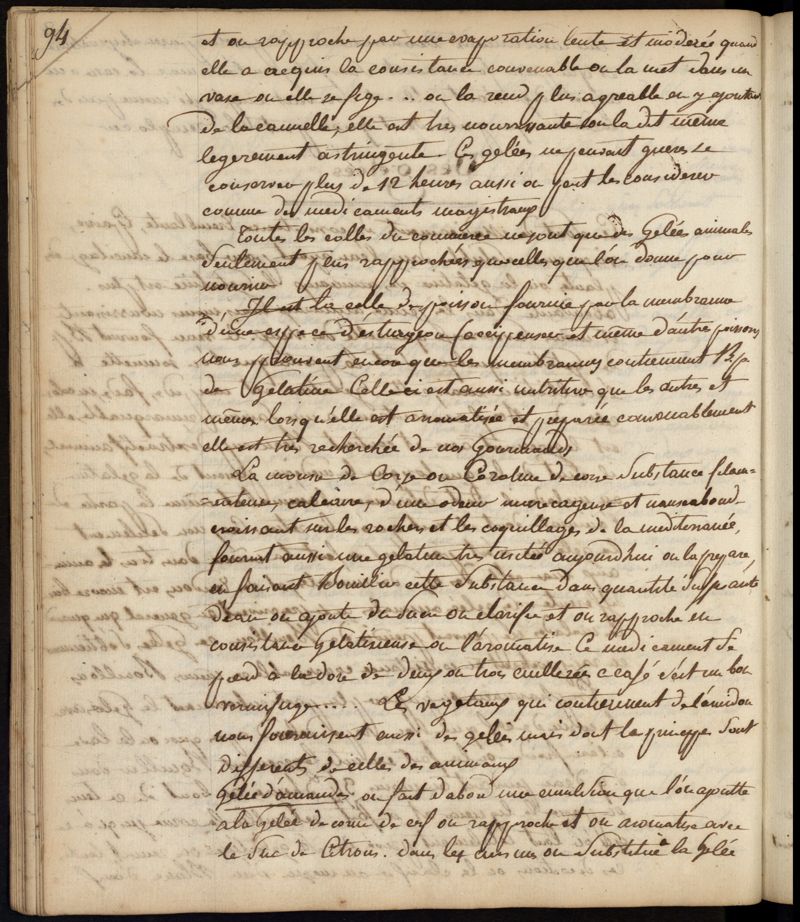 94
et on rapproche par une evaporation lente et modérée quand
elle a acquis la consistance convenable on la met dans un
vase ou elle se fige .. on la rend plus agreable en y ajoutan
de la cannelle, elle est tres nourrissante on la dit même
legerement astringente. Ces gelées ne peuvent gueres se
conserver plus de 12 heures aussi on peut les considerer
comme des medicaments magistraux
Toutes les colles du commerce ne sont que des Gelée animales
Seulement plus rapprochées que celles que l'on donne pour
nourrir
Il est la colle de poisson fournie par la membranne
d'une espece d'esturgeon (accipenser et meme d'autre poissons
nous prouvent encore que les membrannes contiennent Bp
de Gelatine Celle ci est aussi nutritive que les autres et
même, lorsqu'elle est aromatisée et préparée convenablement
elle est très recherchée de nos Gourmands
La mousse de Corse ou Coraline de corse Substance filam-
-enteuse, calcaire, d'une odeur marecageuse et nauseabonde
croissant sur les rochers et les coquillages de la mediteranée,
fournit aussi une gelatine très usitée aujourdhui on la prepare
en faisant Bouillir cette Substance dans quantité suffisante
d'eau on ajoute du sucre on clarifie et on rapproche en
consistance Gelatineuse on l'aromatise Ce medicament se
prend a la dose de deux ou trois cuillerées a café c'est un bon
vermifuge..... Les vegetaux qui contiennent de l'amidon
nous fournissent aussi des gelées mais dont les principes sont
differents de celles des animaux
Gélée d'amandes on fait d'abord une emulsion que l'on ajoutte
a la Gelée de corne de cerf on rapproche et on aromatise avec
le Suc de Citrons. dans les cuisines on Substitue a la Gelée